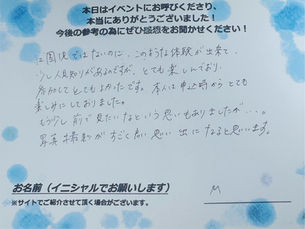 本日はイベントにお呼びくださり、
本当にありがとうございました!
今後の参考の為にぜひ感想をお聞かせください!
ではないのに、このような体験が出来て、
少し人見知りがあるのですが、とても楽しんでおり、
参加してとてもよかったです。本人は申込時からとても
楽しみにしておりました。
もう少し前で見たいなという思いもありましたが…。
写真撮影がすごく良い思い出になると思います。
お名前(イニシャルでお願いします)
M
※サイトでご紹介させて頂く場合がございます。